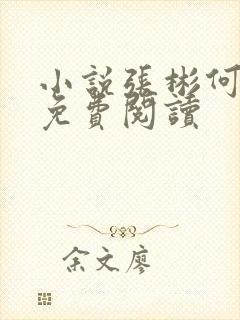 小說張彬何
免費閱讀
余文廖